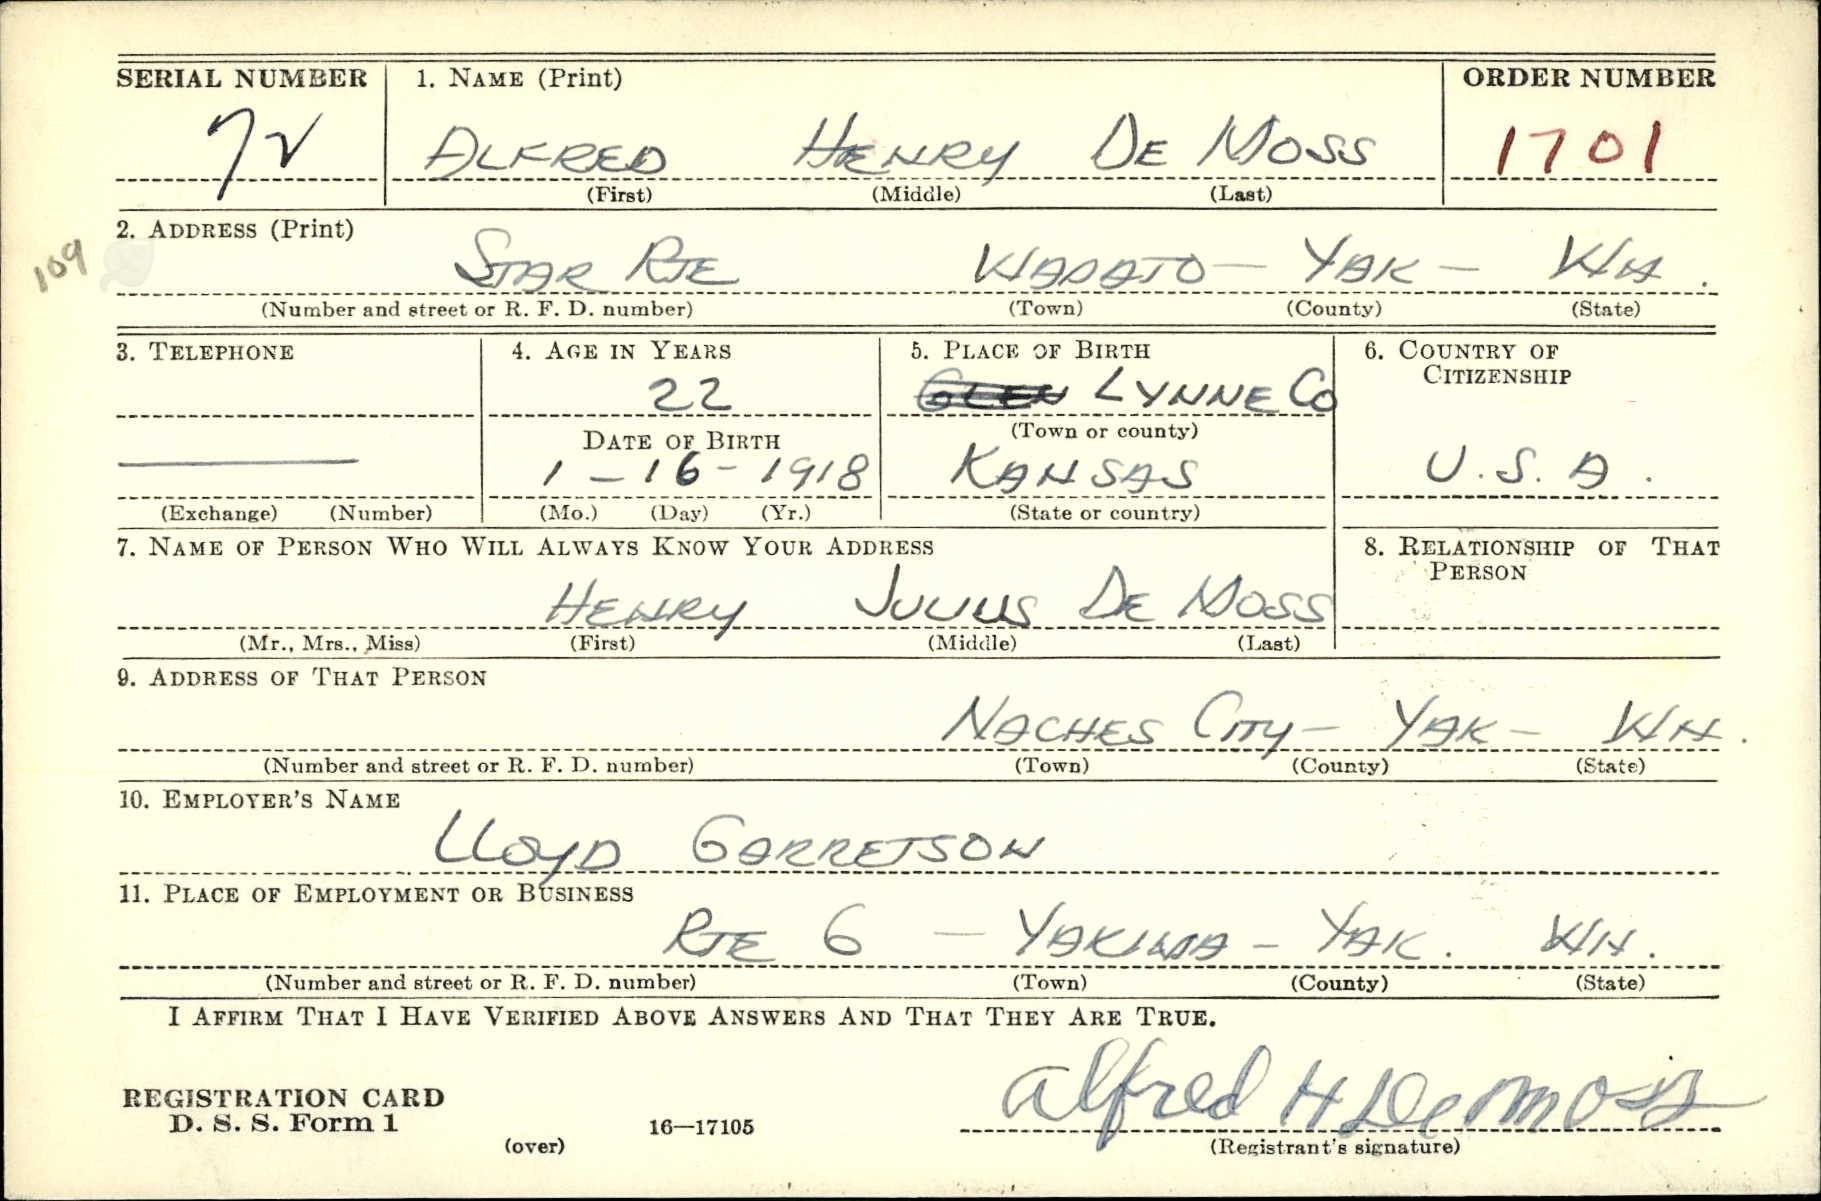 SERIAL NUMBER 1. NAME (Print) ORDER NUMBER
72 ALFRED HENRY DE MOSS 1701
(First) (Middle) (Last)
2. ADDRESS (Print)
109 STAR RTE WAPATO - YAK - WN.
(Number and street or R. F. D. number) (Town) (County) (State)
3. TELEPHONE 4. AGE IN YEARS 5. PLACE OF BIRTH 6. COUNTRY OF CITIZENSHIP
22 GLEN LYNNE CO
(Town or county)
DATE OF BIRTH
1 - 16 - 1918 KANSAS U. S. A.
(Exchange) (Number) (Mo.) (Day) (Yr.) (State or country)
7. NAME OF PERSON WHO WILL ALWAYS KNOW YOUR ADDRESS 8. RELATIONSHIP OF THAT PERSON
HENRY JULIUS DE MOSS
(Mr., Mrs., Miss) (First) (Middle) (Last)
9. ADDRESS OF THAT PERSON
NACHES CITY - YAK - WN.
(Number and street or R. F. D. number) (Town) (County) (State)
10. EMPLOYER'S NAME
LLOYD GARRETSON
11. PLACE OF EMPLOYMENT OR BUSINESS
RTE 6 - YAKIMA - YAK. WN.
(Number and street or R. F. D. number) (Town) (County) (State)
I AFFIRM THAT I HAVE VERIFIED ABOVE ANSWERS AND THAT THEY ARE TRUE.
Alfred H DeMoss
REGISTRATION CARD
D. S. S. Form 1 16—17105
(over) (Registrant's signature)